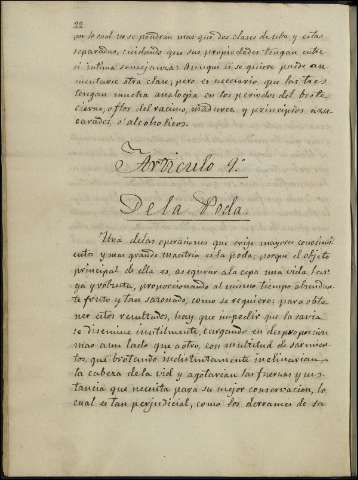 22
por lo cual no se pondrán mas que dos clases de uba, y estas
separadas, cuidando que sus propiedades tengan entre
si intima semejanza: Aunque si se quiere puede au-
mentarse otra clase; pero es necesario que las tres
tengan mucha analogia en los periodos del brote
cierno, o flor del racimo, madurez y principios azu-
carados, o alcoholicos.
Articulo 9.º
De la Poda.
Una de las operaciones que exije mayores conocimi-
entos y mas grande maestria es la poda; porque el objeto
principal de ella es, asegurar a la cepa una vida lar-
ga y robusta, proporcionando al mismo tiempo abundan-
te fruto y tan sazonado, como se requiere: para obte-
ner estos resultados, hay que impedir que la savia
se disemine inutilmente, cargando en desproporcion
mas a un lado que a otro, con multitud de sarmien-
tos, que brotando indistintamente inclinarian
la cabeza de la vid y agotarian las fuerzas y sus-
tancia que necesita para su mejor conservacion, lo
cual es tan perjudicial, como los derrames de sa